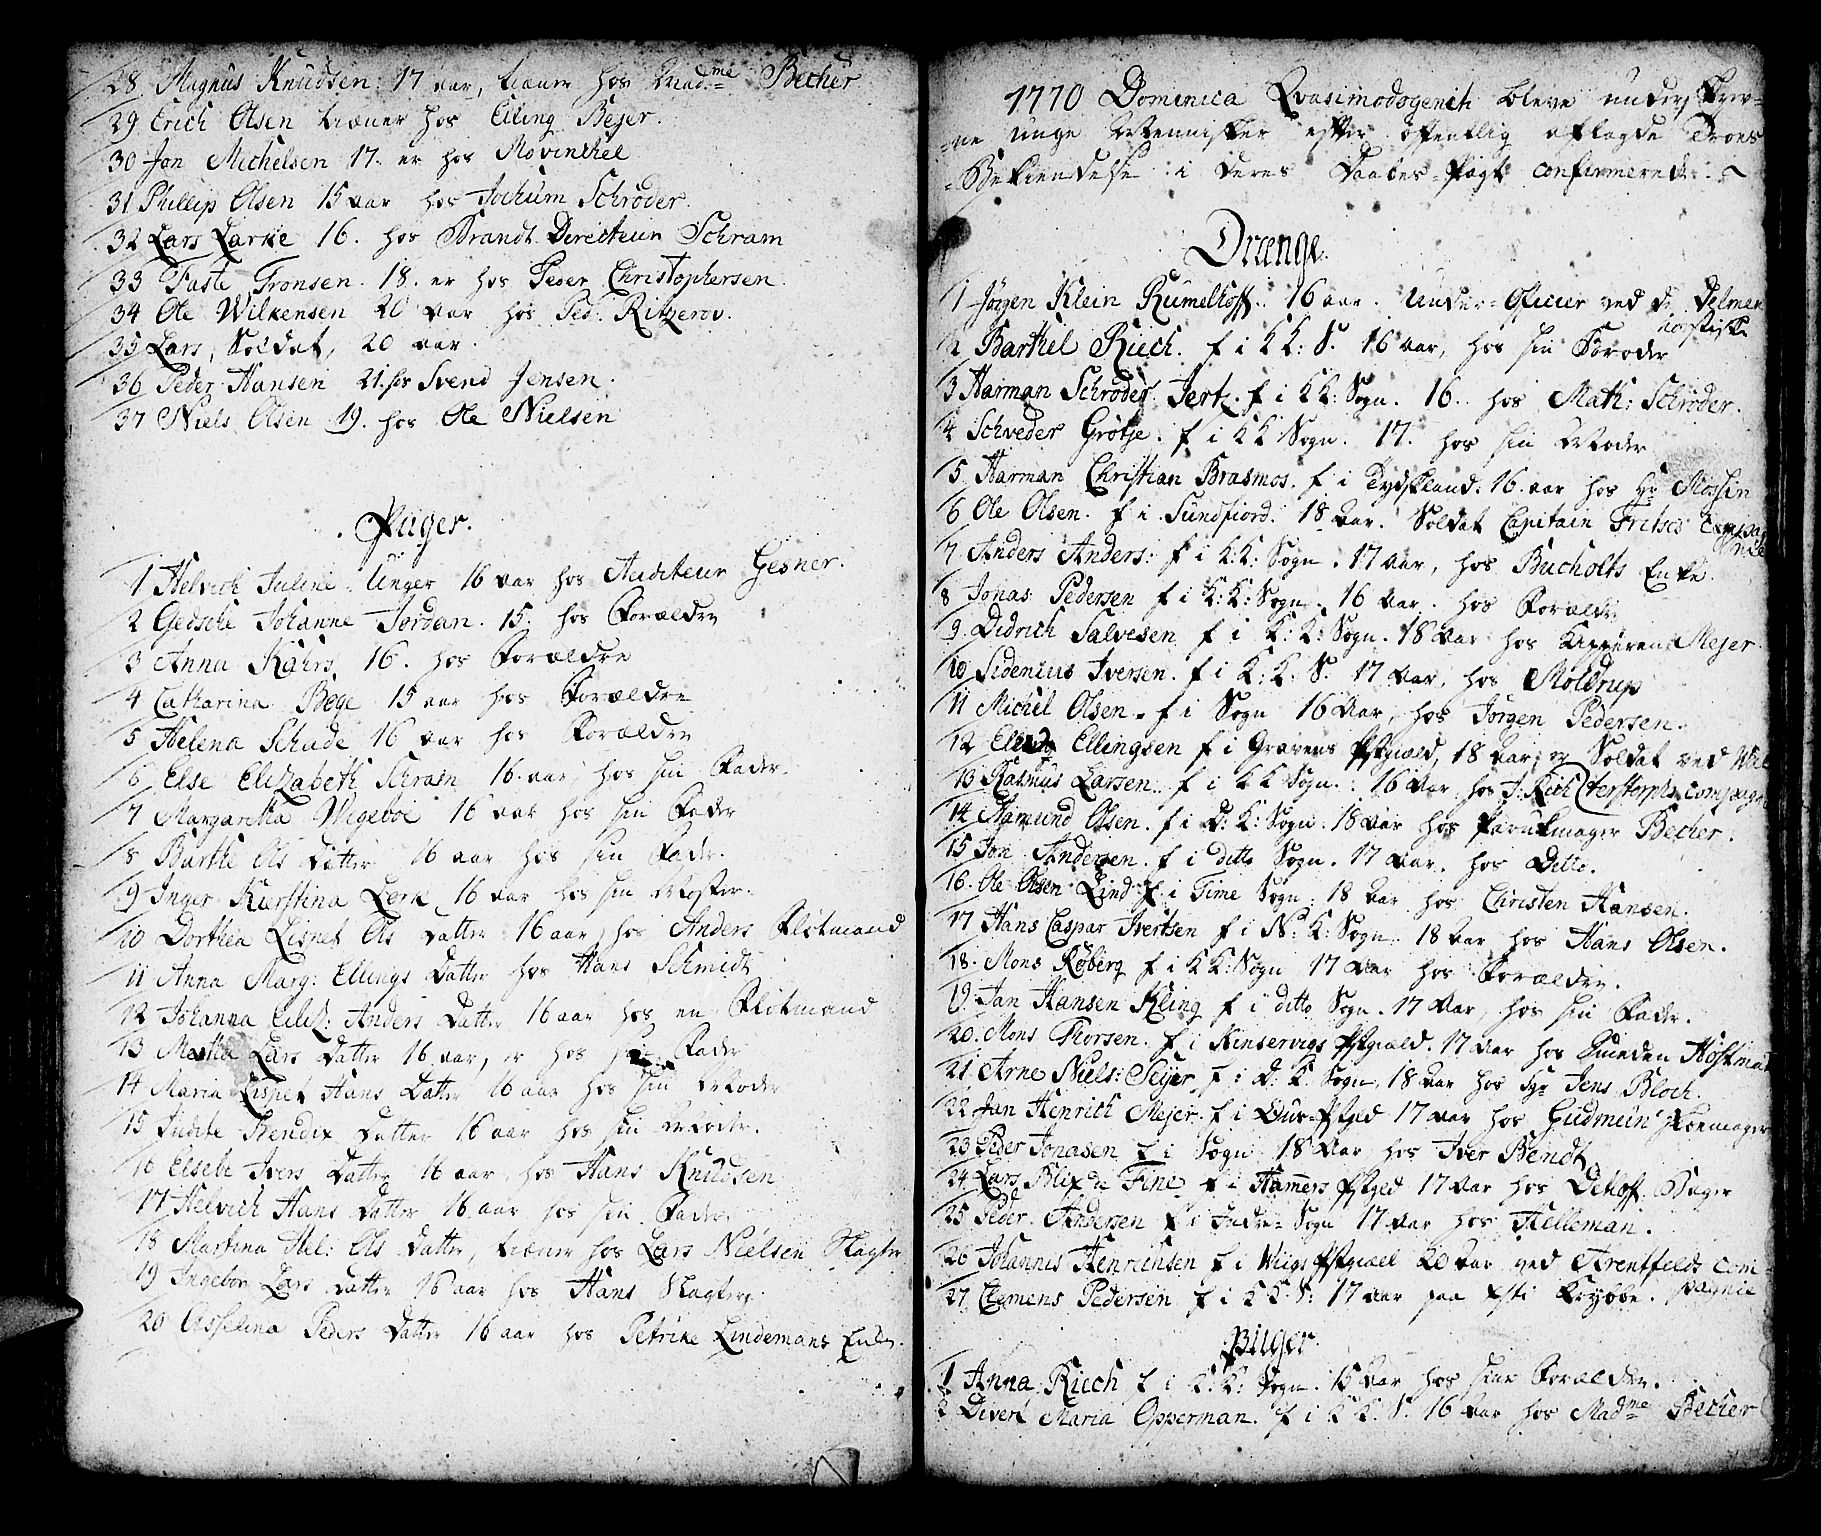 28 Magnus Knudsen 17 aar, tiæner hos Mad:me Becher
29 Erich Olsen tiæner hos Elling Bejer.
30 Jon Michelsen 17. er hos Rovinchel
31 Phillip Olsen 15 aar hos Jochum Schrøder.
32 Lars Larke 16. hos Brandt Directeur Schram
33 Faste Tronsen. 18. er hos Peder Christophersen
34 Ole Wilkensen 20 aar hos Ped. Ritzerov.
35 Lars, Soldat, 20 aar.
36 Peder Hansen 21. hos Svend Jensen.
37 Niels Olsen 19. hos Ole Nielsen
Piiger.
1 Helvich Juline Unger 16 aar hos Auditeur Gesner.
2 Gedsche Johanne Jordan. 15. hos Forældre
3 Anna Kahrs 16. hos Forældre
4 Catharina Bøge 15 aar hos Forældre
5 Helena Schade 16 aar hos Forældre
6 Else Elizabeth Schram 16 aar, hos sin Fader.
7 Margaretha Wigeboe 16 aar hos sin Fader
8 Barthe Ols Datter 16 aar hos sin Fader.
9 Inger Kirstina Lerk 16 aar hos sin Moster.
10 Dorthea Lisnet Ols Datter 16 aar, hos Anders Fløtmand
11 Anna Marg: Ellings Datter hos Hans Schmidt
12 Johanna Eliz: Anders Datter 16 aar hos en Fløtmand
13 Martha Lars Datter 16 aar, er hos sin Fader
14 Maria Lispet Hans Datter 16 aar hos sin Moder
15 Judite Hendix Datter 16 aar hos sin Moder.
16 Elsebe Ivers Datter 16 aar, hos Hans Knudsen
17 Helvich Hans Datter 16 aar hos sin Fader.
18 Martina Hel: Ols Datter, tiæner hos Lars Nielsen Slagter
19 Ingebor Lars Datter 16 aar hos Hans Slagter.
20 Asselina Peders Datter 16 aar hos Petrike Lindemans Enke.
1770 Dominica Qvasimodogeniti bleve underskrev-
ne unge Mennisker efter offentlig aflagde Troes
Bekiendelse i deres Daabes-Pagt confirmerede.
Drenge.
1 Jørgen Klein Rumelhoff. 16 aar. Under-Officier ved de Delmen
horstiske
2 Barthel Riech. f i K K: S. 16 aar, hos sin Forædre
3 Harman Schrøder Jert. f i K K: Sogn. 16. hos Math: Schrøder.
4 Schveder Grøtje. f i K K Sogn. 17. hos sin Moder
5 Harman Christian Brasmos. f i Tydskland. 16. aar hos Hr Mossin
6 Ole Olsen. f i Sundfiord. 18 aar. Soldat Capitain Fritses Compag
nie
7 Anders Anders: f i K: K: Sogn. 17 aar, hos Bucholts Enke.
8 Jonas Pedersen f i K: K: Sogn. 16 aar. hos Forældre
9 Didrich Salvesen f i K: K: Sogn. 18 aar hos Mejer.
10 Sidenius Iversen. f i K: K: S. 17 aar, hos Moldrup
11 Michel Olsen. f i Sogn 16 aar, hos Jørgen Pedersen.
12 Elling Ellingsen f i Gravens Pstgiæld, 18 aar, og Soldat ved Wal
13 Rasmus Larsen. f i K K Sogn. 16 aar hos J: Rich terstorphs Compagnie
14 Aamund Olsen. f i D: K: Sogn. 18 aar hos Parukmager Becher.
15 Jon Andersen. f i ditto Sogn. 17 aar. hos Ditto.
16. Ole Olsen Lind f i Time Sogn. 18 aar hos Christen Hansen.
17 Hans Caspar Ivertsen f i N: K: Sogn. 18 aar hos Hans Olsen.
18. Mons Røberg f i K K: Sogn 17 aar hos Forældre.
19. Jan Hansen Kling f i ditto Sogn. 17 aar, hos sin Fader.
20. Mons Thorsen. f i Kinservigs Pstgiæld. 17 aar hos Smeden Høstmad
21 Arne Niels: Seyer f i D: K. Sogn, 18 aar hos Hr Jens Bloch.
22 Jan Henrich Mejer. f i Ous-Pstged 17 aar hos Gudmun Skoemager
23 Peder Jonasen f i Sogn 18 aar hos Iver Bendt
24 Lars Blix Fine f i Hamers Pstged 17 aar hos Dethoff Bager
25 Peder Andersen f i Indre-Sogn 17 aar hos Helleman.
26 Johannis Henrichsen f i Wiigs Pstgiæl 20 aar ved Arentfelds Com-
pagnie
27 Clemens Pedersen f i K K: S: 17 aar paa
Piiger.
1 Anna Riech f i K: K: Sogn. 15 aar hos sine Forældre.
2 Divert Maria Opperman. f i K K. S. 16 aar hos Mad:me Becher